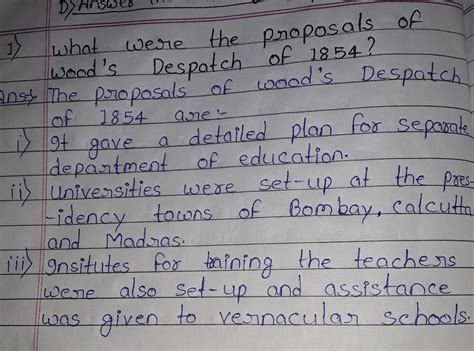 D) Answer the
1) What were the proposals of
Wood's Despatch of 1854?
Ans> The proposals of wood's Despatch
of 1854 are:-
i) It gave a detailed plan for separate
department of education.
ii) Universities were set-up at the pres-
-idency towns of Bombay, calcutta
and Madras.
iii) Insitutes for training the teachers
were also set-up and assistance
was given to vernacular schools.